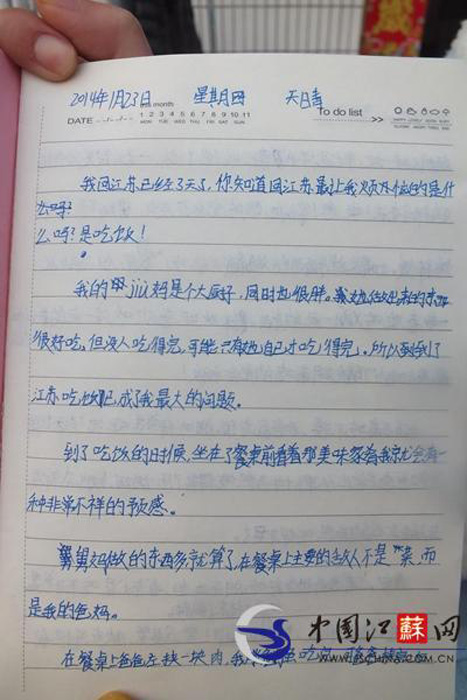 2014年1月23日 星期四 天晴
DATE month 1 2 3 4 5 6 7 8 9 10 11 To do list >>
MON TUE WED THU FRI SAT SUN
我回江苏已经3天了,你知道回江苏最让我烦恼的是什
么吗?
么吗?是吃饭!
我的 jiù妈是个大厨子,同时也很胖。她做出来的东西
很好吃,但没人吃得完,可能只有她自己才吃得完。所以到了
江苏吃饭,成了我最大的问题。
到了吃饭的时候,坐在了餐桌前看着那美味家肴我就会有一
种非常不祥的预感。
舅舅妈做的东西多就算了,在餐桌上主要的敌人不是"菜,而
是我的爸妈。
在餐桌上爸爸左挟一块肉,我
中国江蘇网